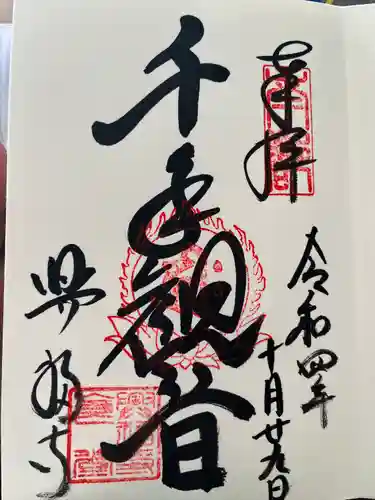 奉拝
令和四年
十月廿九日
千手観音
興福寺